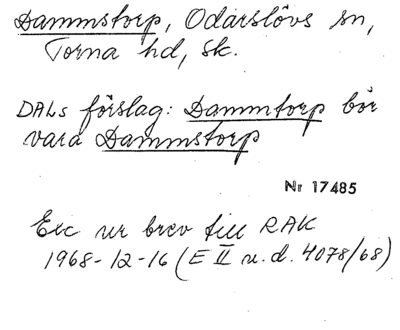 Dammstorp, Odarslövs sn,
Torna hd, Sk.
DALs förslag: Dammtorp bör
vara Dammstorp
Nr 17485
Exc ur brev till RAK
1968-12-16 (E II u.d. 4078/68)